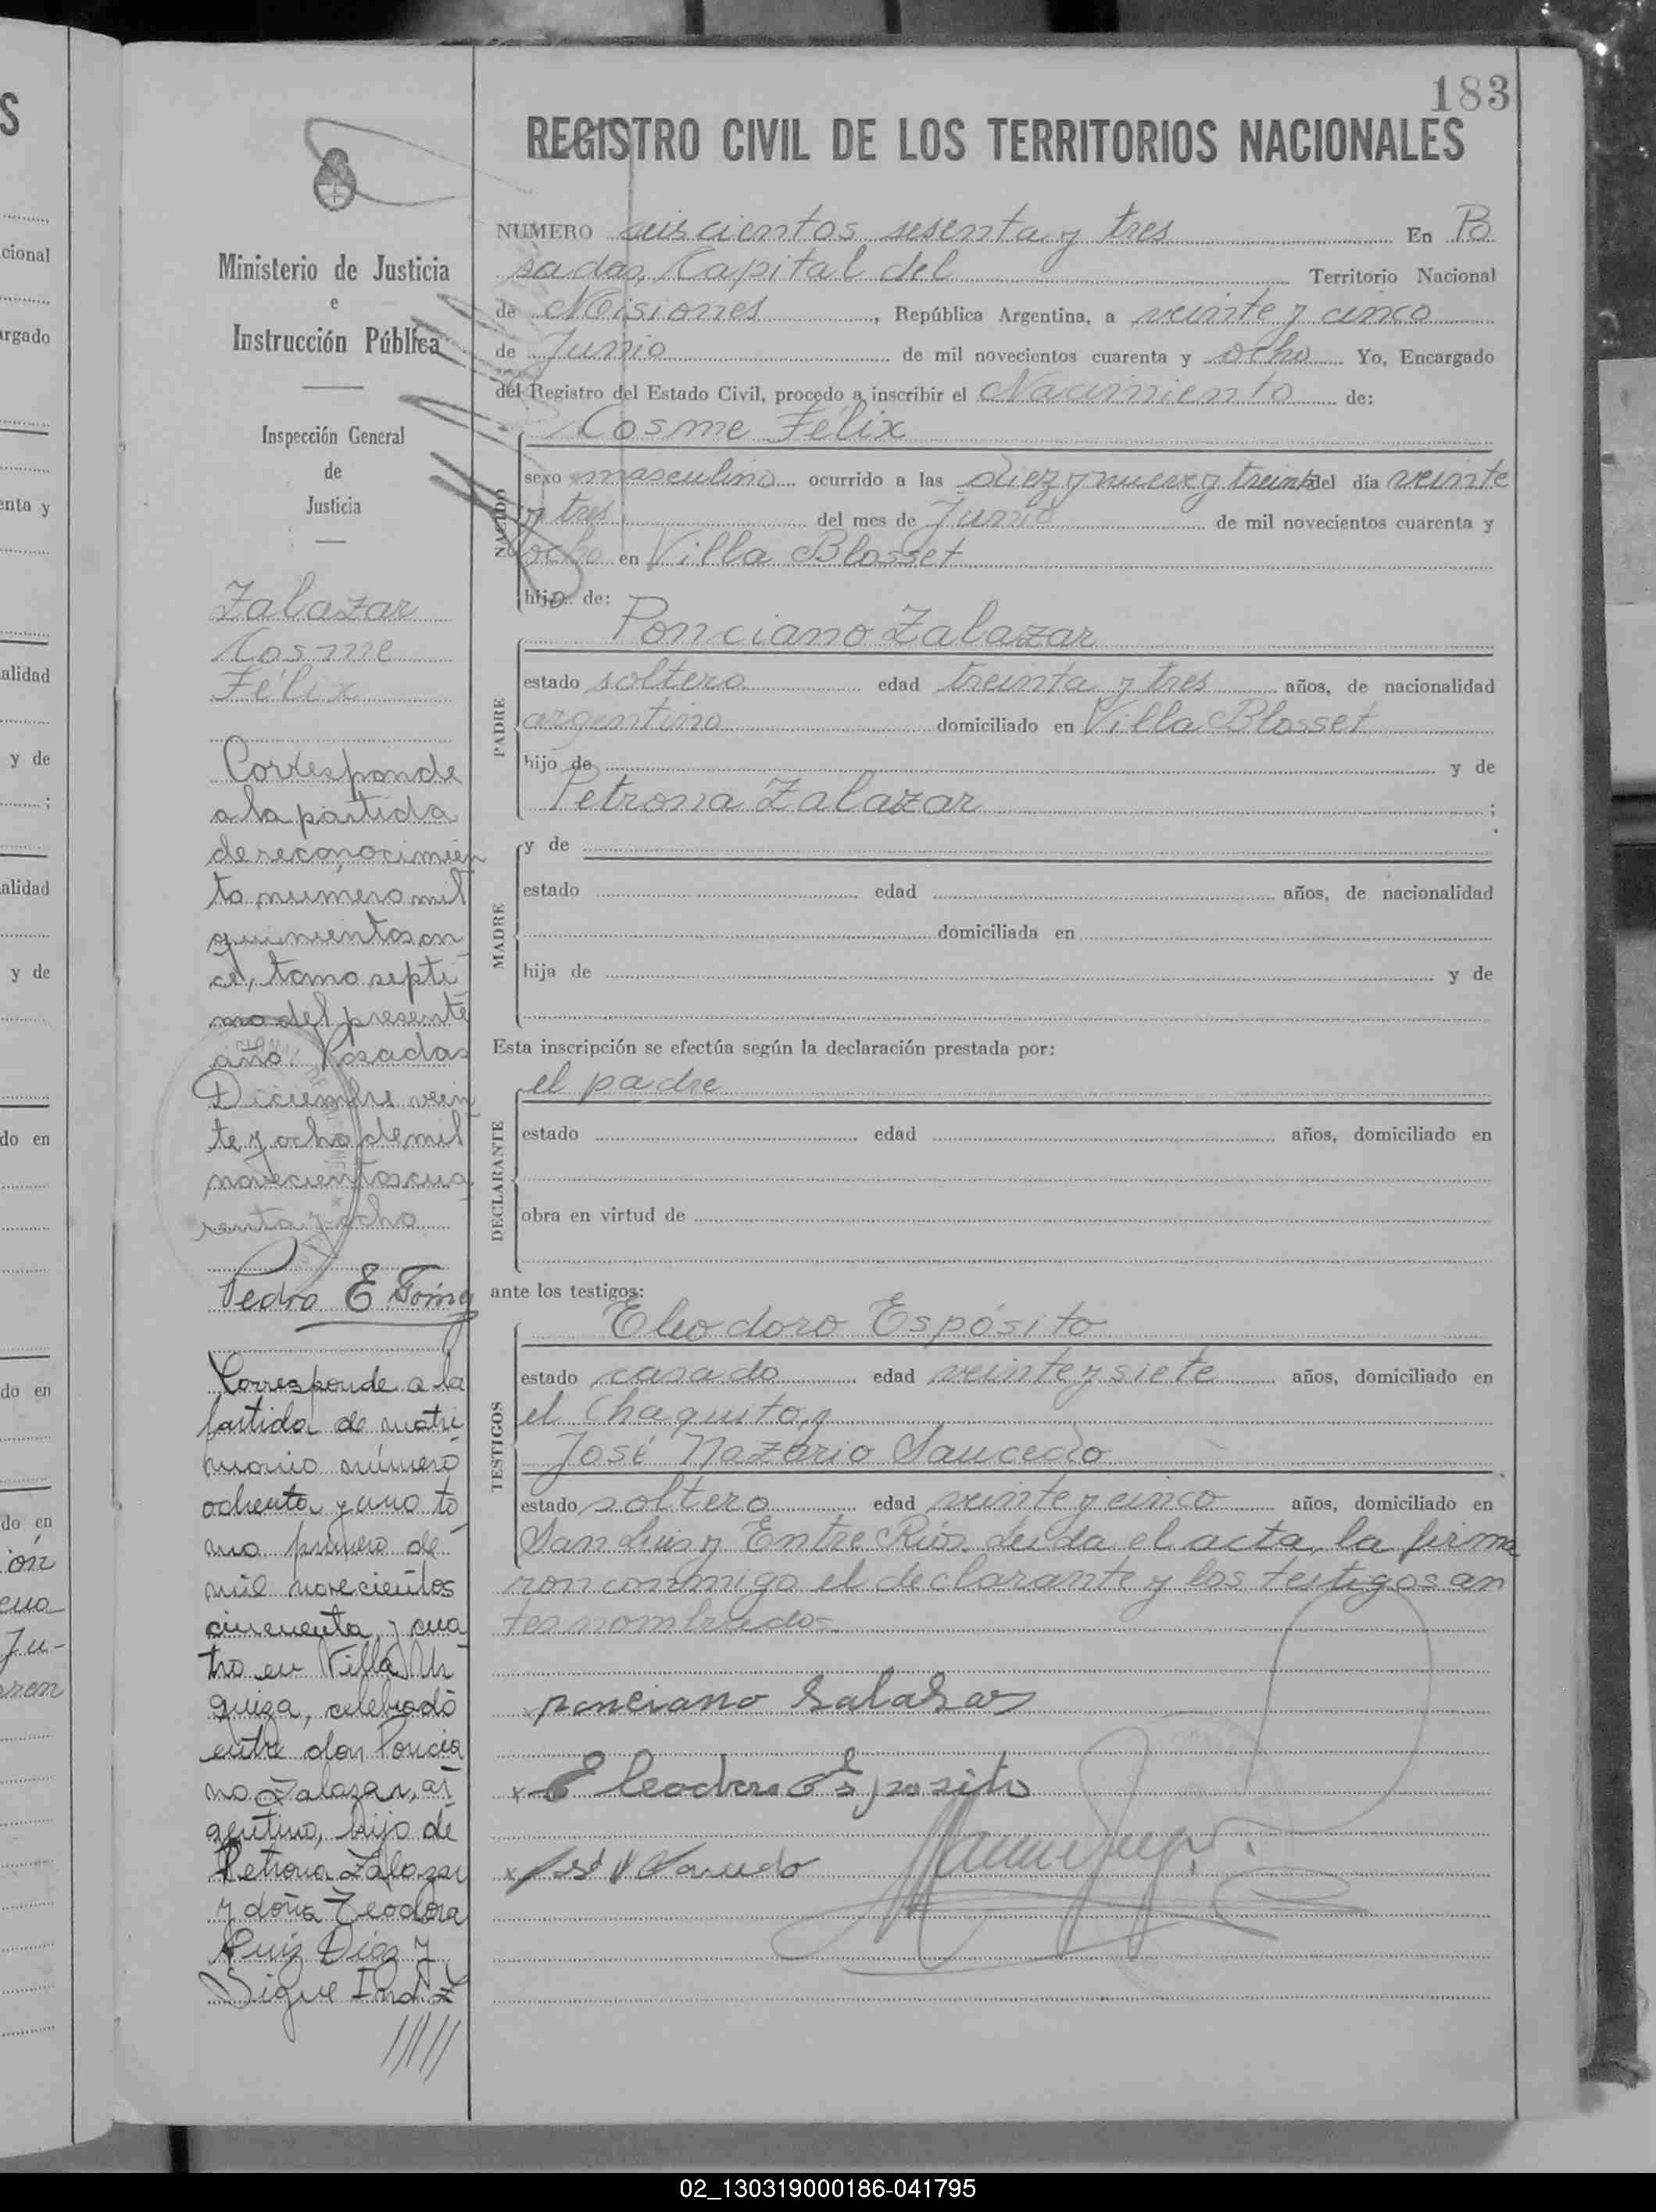 183
REGISTRO CIVIL DE LOS TERRITORIOS NACIONALES
Ministerio de Justicia
e
Instrucción Pública
Inspección General
de
Justicia
Zalazar
Cosme
Félix
Corresponde
a la partida
de reconocimien
to numero mil
quinientos on
ce, tomo septi
mo del presente
año. Posadas
Diciembre vein
te y ocho de mil
novecientos cua
renta y ocho
Pedro E.
Corresponde a la
partida de matri
monio número
ochenta y uno to
mo primero de
mil novecientos
cincuenta y cua
tro en Villa Ur
quiza, celebrado
entre don Poncia
no Zalazar, ar
gentino, hijo de
Petrona Zalazar
y doña Teodora
Ruiz Diaz y
Sigue
NUMERO seiscientos sesenta y tres En Po
sadas, Capital del Territorio Nacional
de Misiones, República Argentina, a veinte y cinco
de Junio de mil novecientos cuarenta y ocho Yo, Encargado
del Registro del Estado Civil, procedo a inscribir el Nacimiento de:
Cosme Félix
NACIDO
sexo masculino ocurrido a las diez y nueve y treinta del día veinte
y tres del mes de Junio de mil novecientos cuarenta y
ocho en Villa Blosset
hijo de:
Ponciano Zalazar
PADRE
estado soltero edad treinta y tres años, de nacionalidad
argentino domiciliado en Villa Blosset
hijo de y de
Petrona Zalazar ;
y de
MADRE
estado edad años, de nacionalidad
domiciliada en
hija de y de
Esta inscripción se efectúa según la declaración prestada por:
el padre
DECLARANTE
estado edad años, domiciliado en
obra en virtud de
ante los testigos:
Eleodoro Espósito
TESTIGOS
estado casado edad veinte y siete años, domiciliado en
el Chaquito y
José Nazário Saucedo
estado soltero edad veinte y cinco años, domiciliado en
San Luis y Entre Rios. Leida el acta, la firma
ron conmigo el declarante y los testigos an
tes nombrados
ponciano Salasar
x Eleodoro Esposito
x José N Saucedo
cional
argado
enta y
alidad
y de
;
alidad
y de
do en
do en
do en
ón
cua
Ju-
02_130319000186-041795